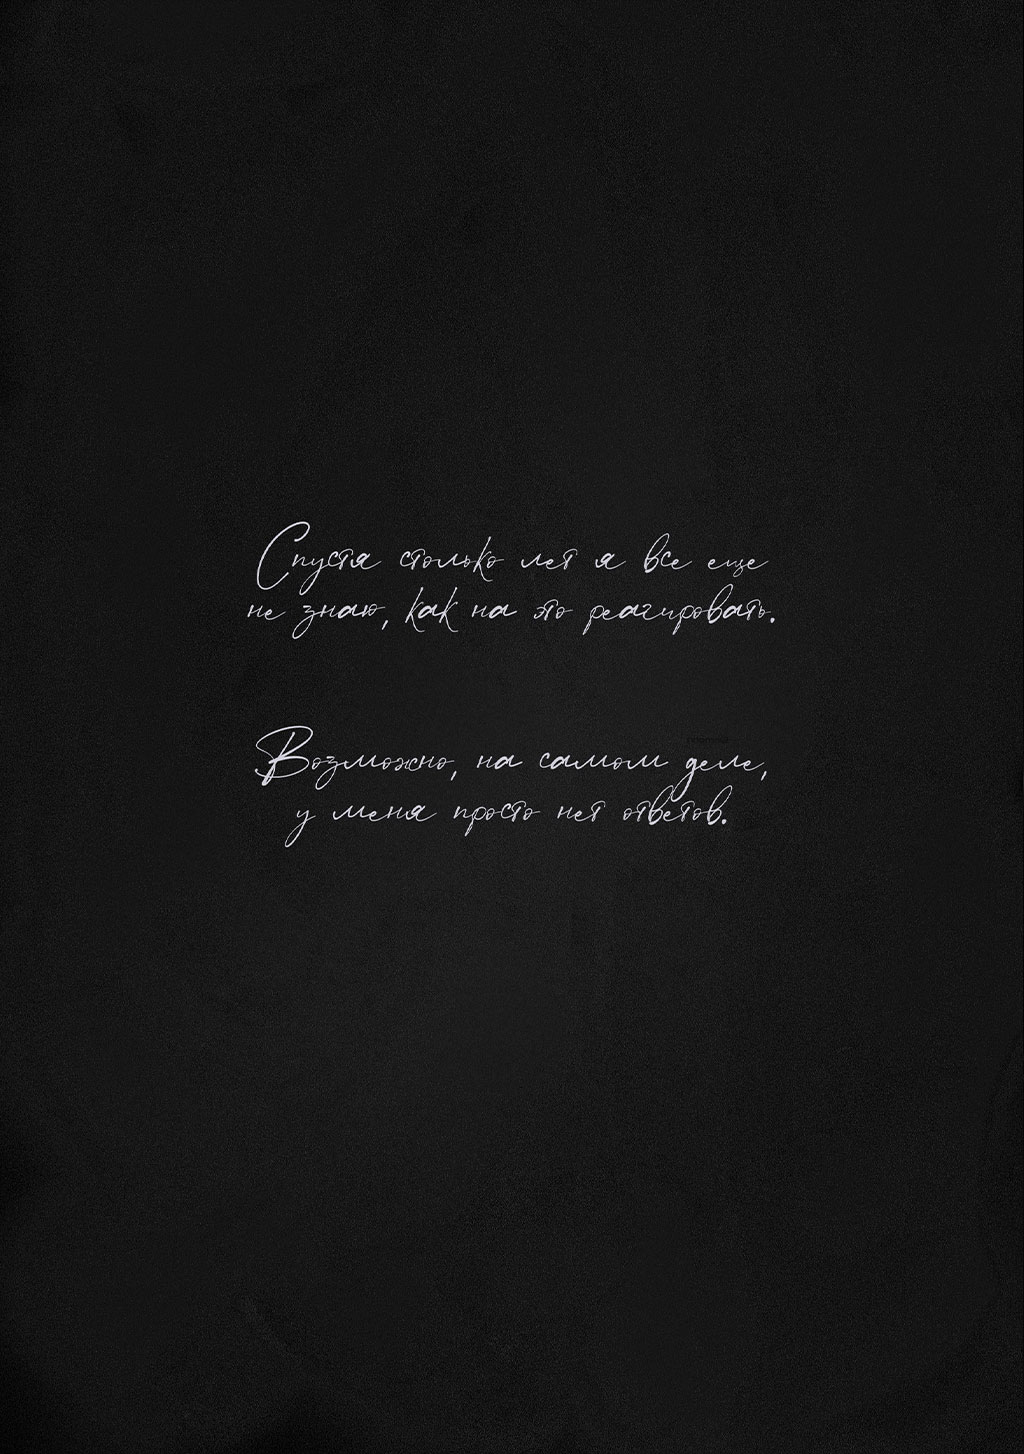 Спустя столько лет я все еще
не знаю, как на это реагировать.
Возможно, на самом деле,
у меня просто нет ответов.